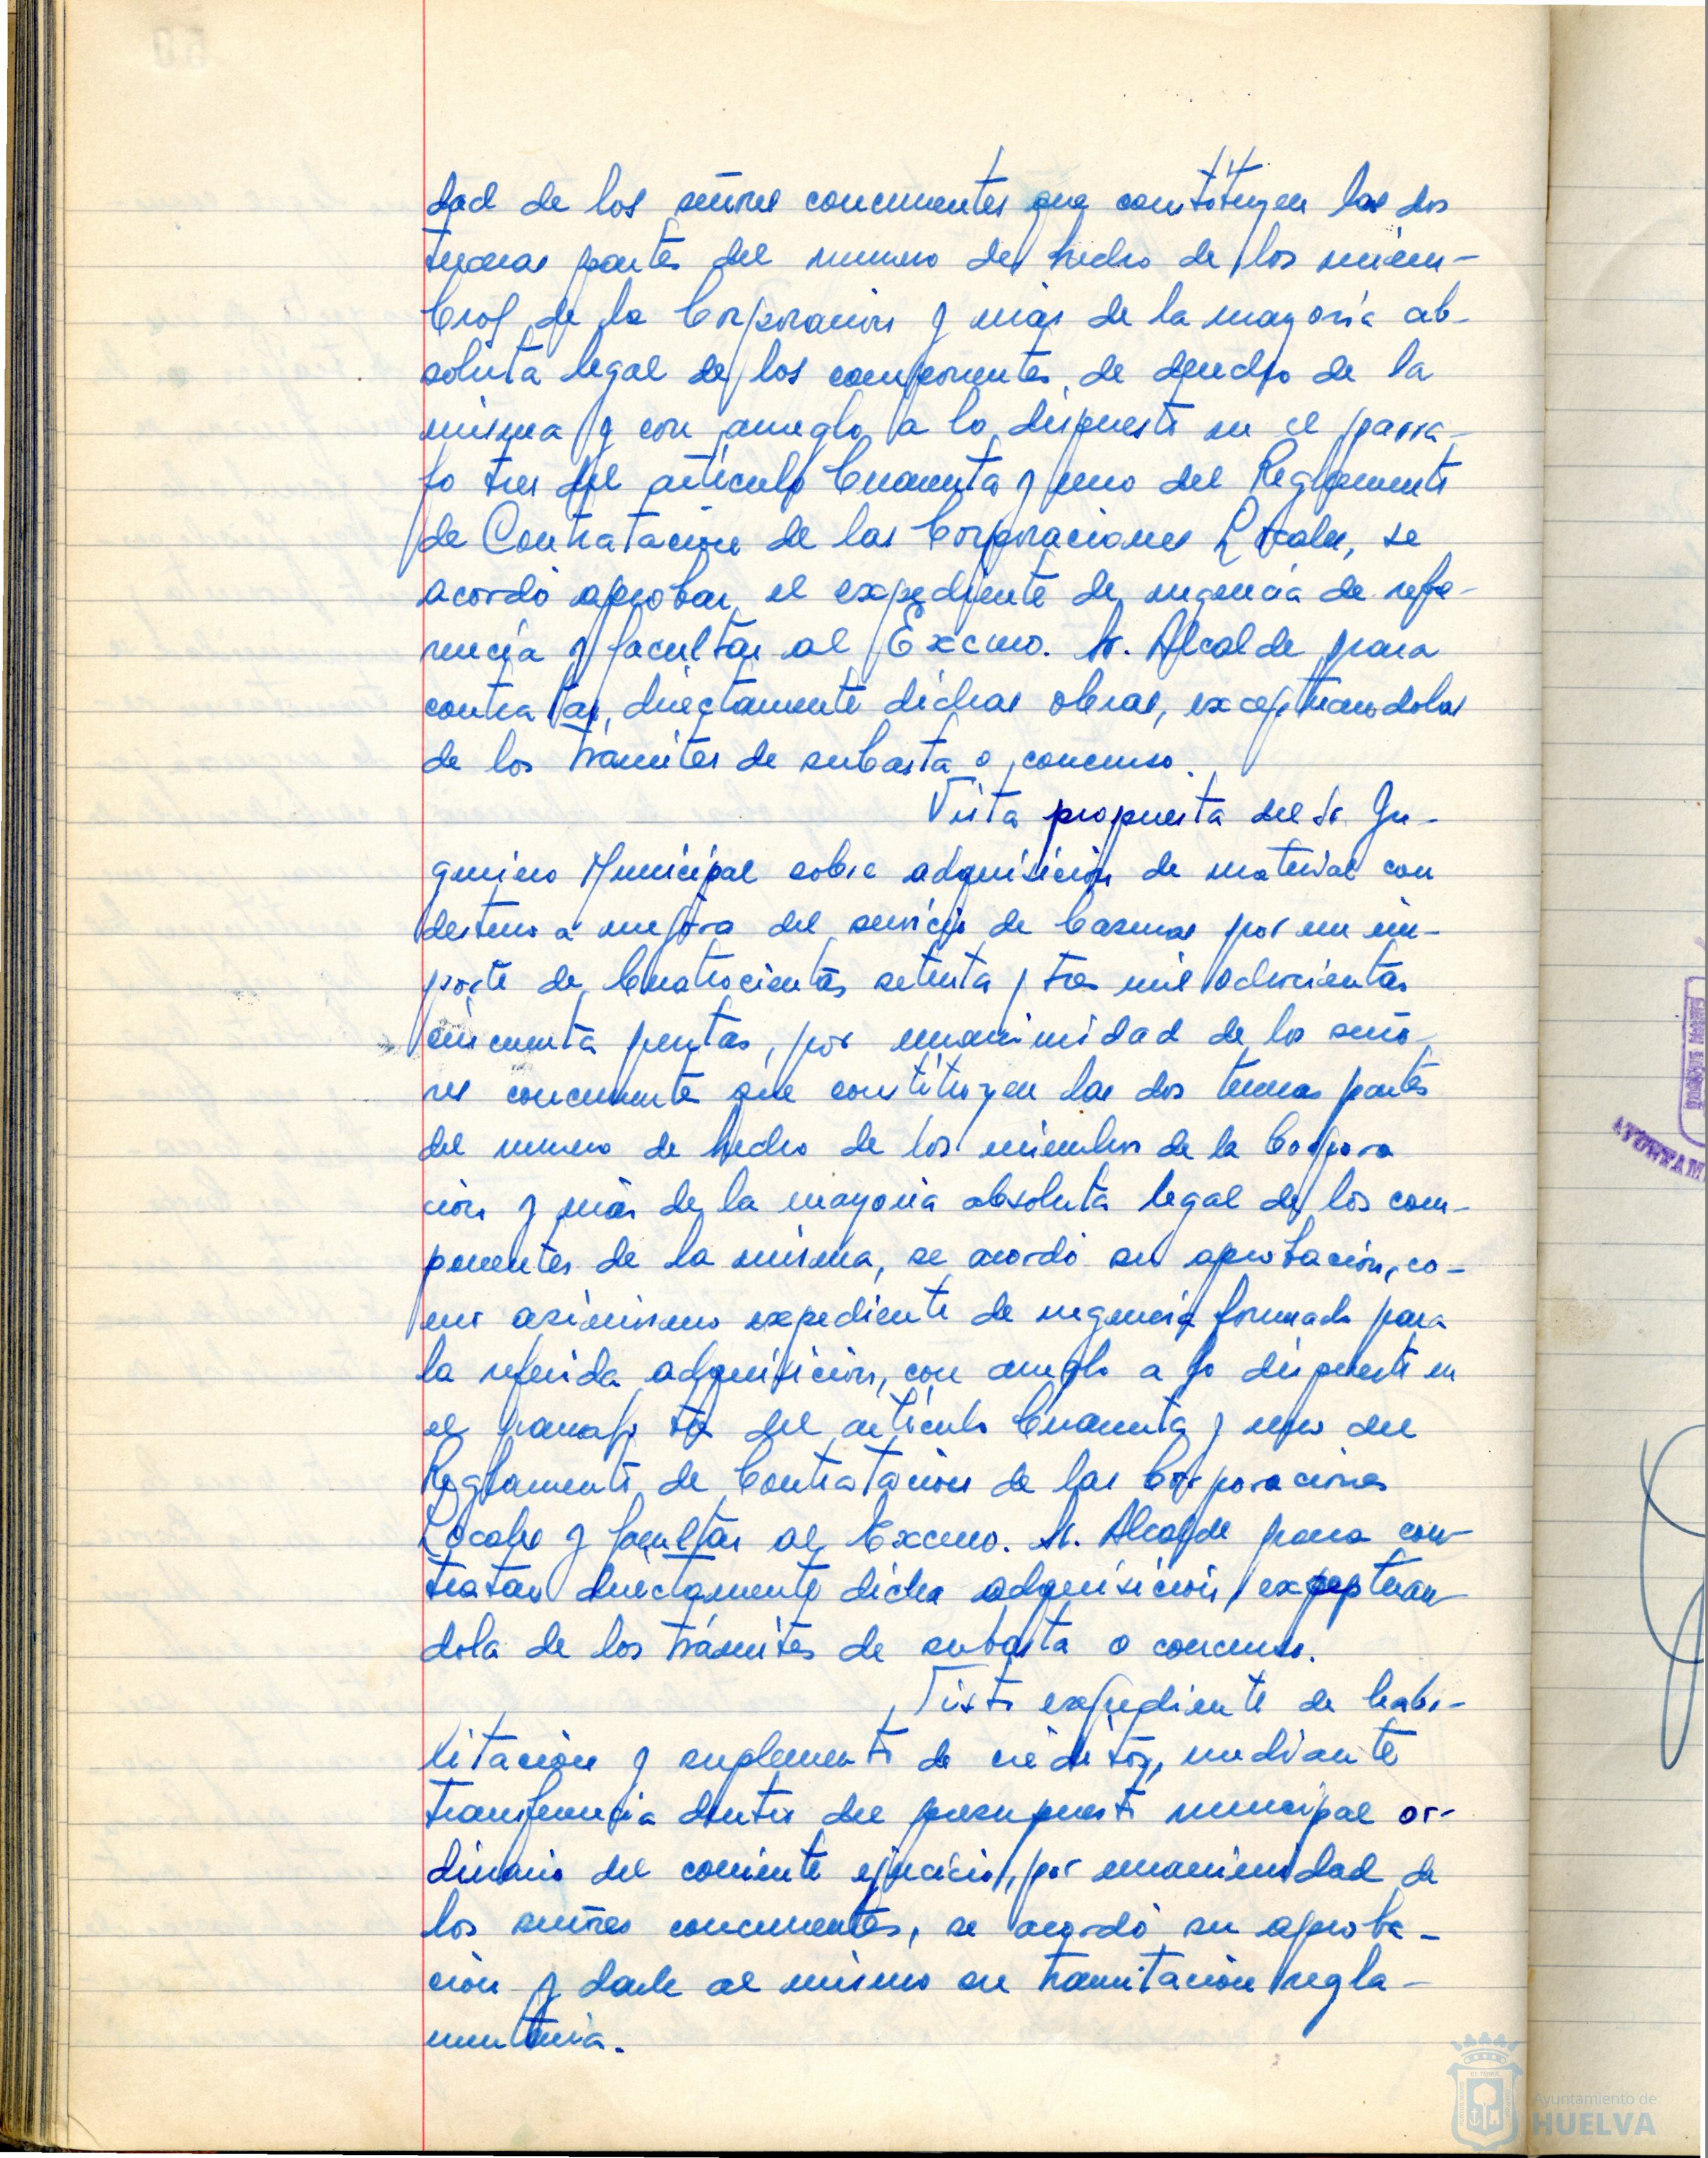 dad de los señores concurrentes que constituyen las dos
terceras partes del numero de hecho de los miem-
bros de la Corporacion y más de la mayoría ab-
soluta legal de los componentes de derecho de la
misma y con arreglo a lo dispuesto en el parra-
fo tres del artículo Cuarenta y uno del Reglamento
de Contratación de las Corporaciones Locales, se
acordó aprobar el expediente de urgencia de refe-
rencia y facultar al Excmo. Sr. Alcalde para
contratar directamente dichas obras, exceptuandolas
de los trámites de subasta o concurso.
Vista propuesta del Sr. In-
geniero Municipal sobre adquisición de material con
destino a mejora del servicio de basuras por un im-
porte de Cuatrocientas setenta y tres mil ochocientas
cincuenta pesetas, por unanimidad de los seño-
res concurrentes que constituyen las dos terceras partes
del numero de hecho de los miembros de la Corpora
ción y más de la mayoria absoluta legal de los com-
ponentes de la misma, se acordó su aprobación, co-
mo asimismo expediente de urgencia formado para
la referida adquisición, con arreglo a lo dispuesto en
el parrafo tres del artículo Cuarenta y uno del
Reglamento de Contratación de las Corporaciones
Locales y facultar al Excmo. Sr. Alcalde para con-
tratar directamente dicha adquisición, exceptuan-
dola de los trámites de subasta o concurso.
Visto expediente de habi-
litación y suplemento de créditos, mediante
transferencia dentro del presupuesto municipal or-
dinario del corriente ejercicio, por unanimidad de
los señores concurrentes, se acordó su aproba-
ción y darle al mismo su tramitación regla-
mentaria.
AYUNTAM
Ayuntamiento de
HUELVA